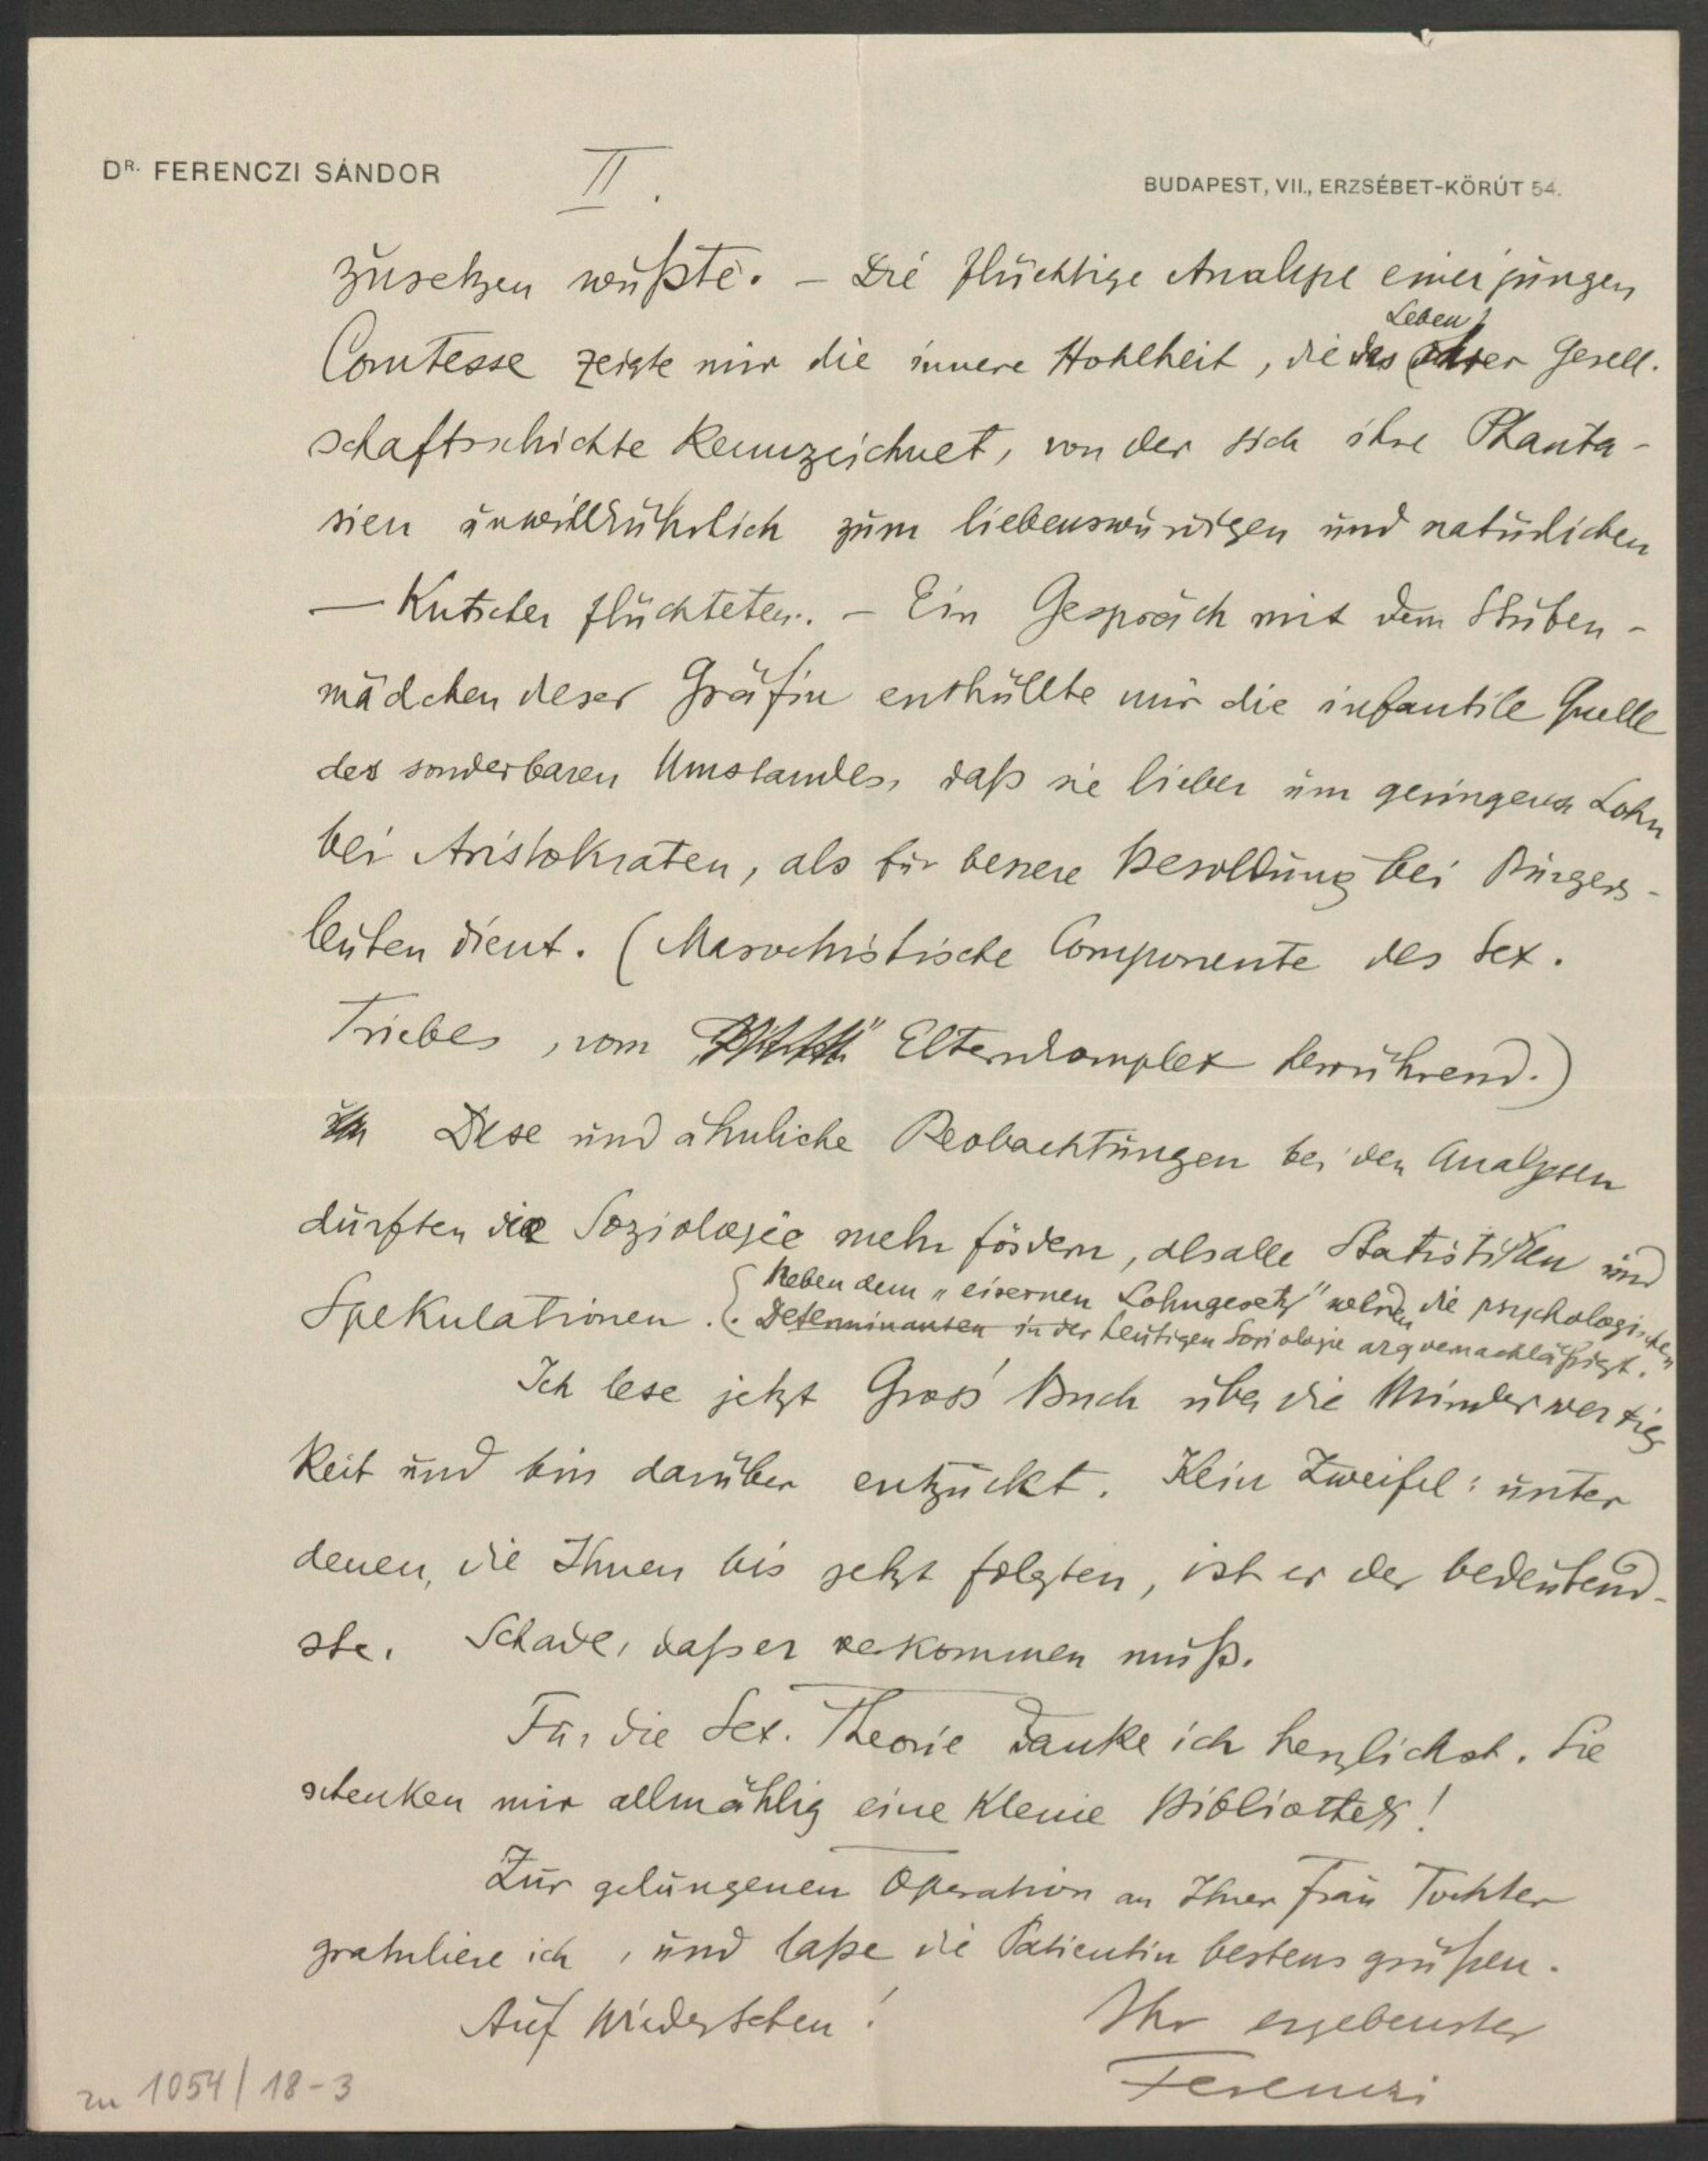 DR. FERENCZI SÁNDOR
II.
BUDAPEST, VII., ERZSÉBET-KÖRÚT 54.
zusetzen wußte. – Die flüchtige Analyse einer jungen
Comtesse zeigte mir die innere Hohlheit, die das Leben ihrer Gesell-
schaftsschichte kennzeichnet, von der sich ihre Phanta-
sien unwillkührlich zum liebenswürdigen und natürlichen
— Kutscher flüchteten. – Ein Gespräch mit dem Stuben-
mädchen dieser Gräfin enthüllte mir die infantile Quelle
des sonderbaren Umstandes, daß sie lieber um geringeren Lohn
bei Aristokraten, als für bessere Besoldung bei Bürgers-
leuten dient. (Masochistische Componente des Sex.
Triebes, vom Elternkomplex herrührend.)
Diese und ähnliche Beobachtungen bei den Analysen
dürften die Soziologie mehr fördern, als alle Statistiken und
Spekulationen. (Neben dem „eisernen Lohngesetz" werden die psychologischen
Determinanten in der heutigen Soziologie arg vernachläßigt.
Ich lese jetzt Gross' Buch über die Minderwertig
keit und bin darüber entzückt. Kein Zweifel: unter
denen, die Ihnen bis jetzt folgten, ist er der bedeutend-
ste. Schade, daß er verkommen muß.
Für die Sex. Theorie danke ich herzlichst. Sie
schenken mir allmählig eine kleine Bibliothek!
Zur gelungenen Operation an Ihrer Frau Tochter
gratuliere ich, und laße die Patientin bestens grüßen.
Auf Wiedersehen! Ihr ergebenster
Ferenczi
zu 1054/18-3